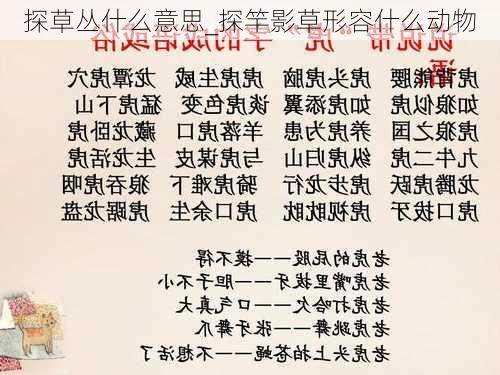 探草丛什么意思_探竿影草形容什么动物
说说带“虎”字的成语或俗
语
虎背熊腰 虎头虎脑 虎虎生威 龙潭虎穴
如狼似虎 如虎添翼 谈虎色变 猛虎下山
虎狼之国 养虎为患 羊落虎口 藏龙卧虎
九牛二虎 纵虎归山 与虎谋皮 生龙活虎
龙腾虎跃 虎步龙行 骑虎难下 狼吞虎咽
虎口拔牙 虎视眈眈 虎口余生 虎踞龙盘
老虎的屁股———摸不得
老虎嘴里拔牙———胆子不小
老虎打哈欠———口气真大
老虎跳舞———张牙舞爪
老虎头上拍苍蝇———不想活了